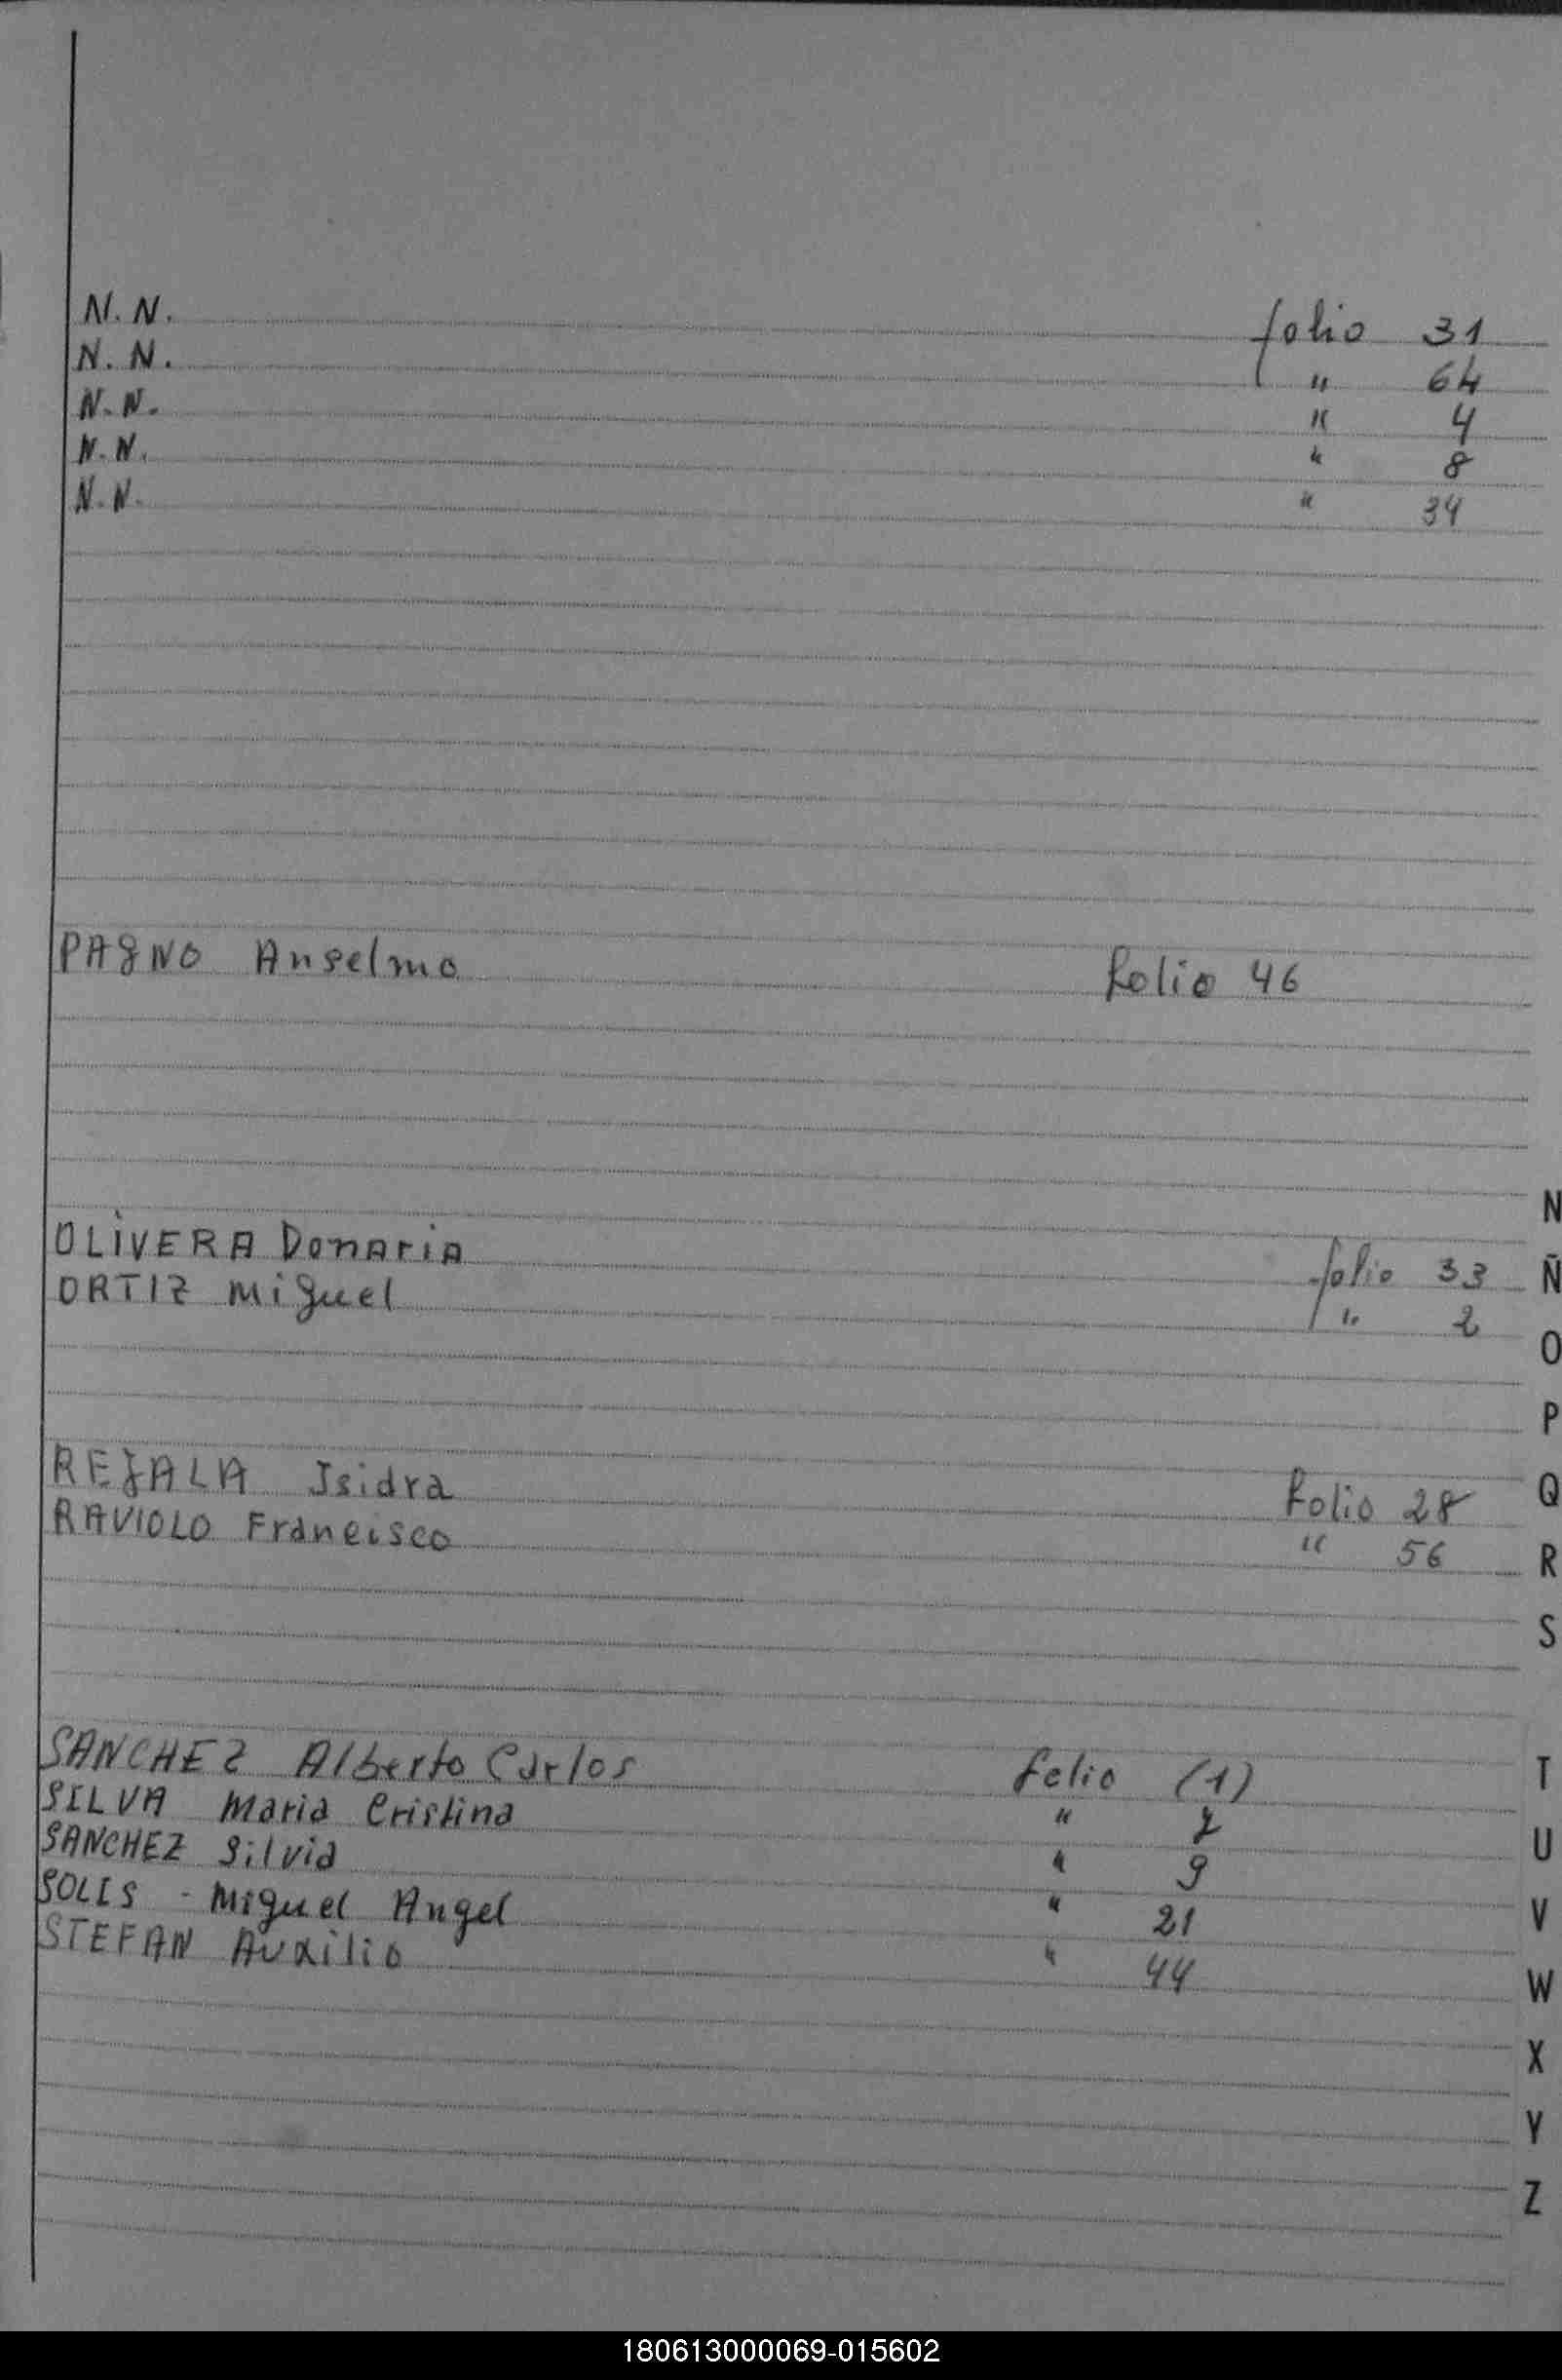 N. N. folio 31
N. N. " 64
N. N. " 4
N. N. " 8
N. N. " 34
PAGNO Anselmo Folio 46
OLIVERA Donaria folio 33
ORTIZ Miguel " 2
Isidra Folio 28
RAVIOLO Francisco " 56
SANCHEZ Alberto Carlos folio (1)
SILVA Maria Cristina "
SANCHEZ Silvia " 9
SOLIS - Miguel Angel " 21
STEFAN Auxilio " 44
N
Ñ
O
P
Q
R
S
T
U
V
W
X
Y
Z
180613000069-015602